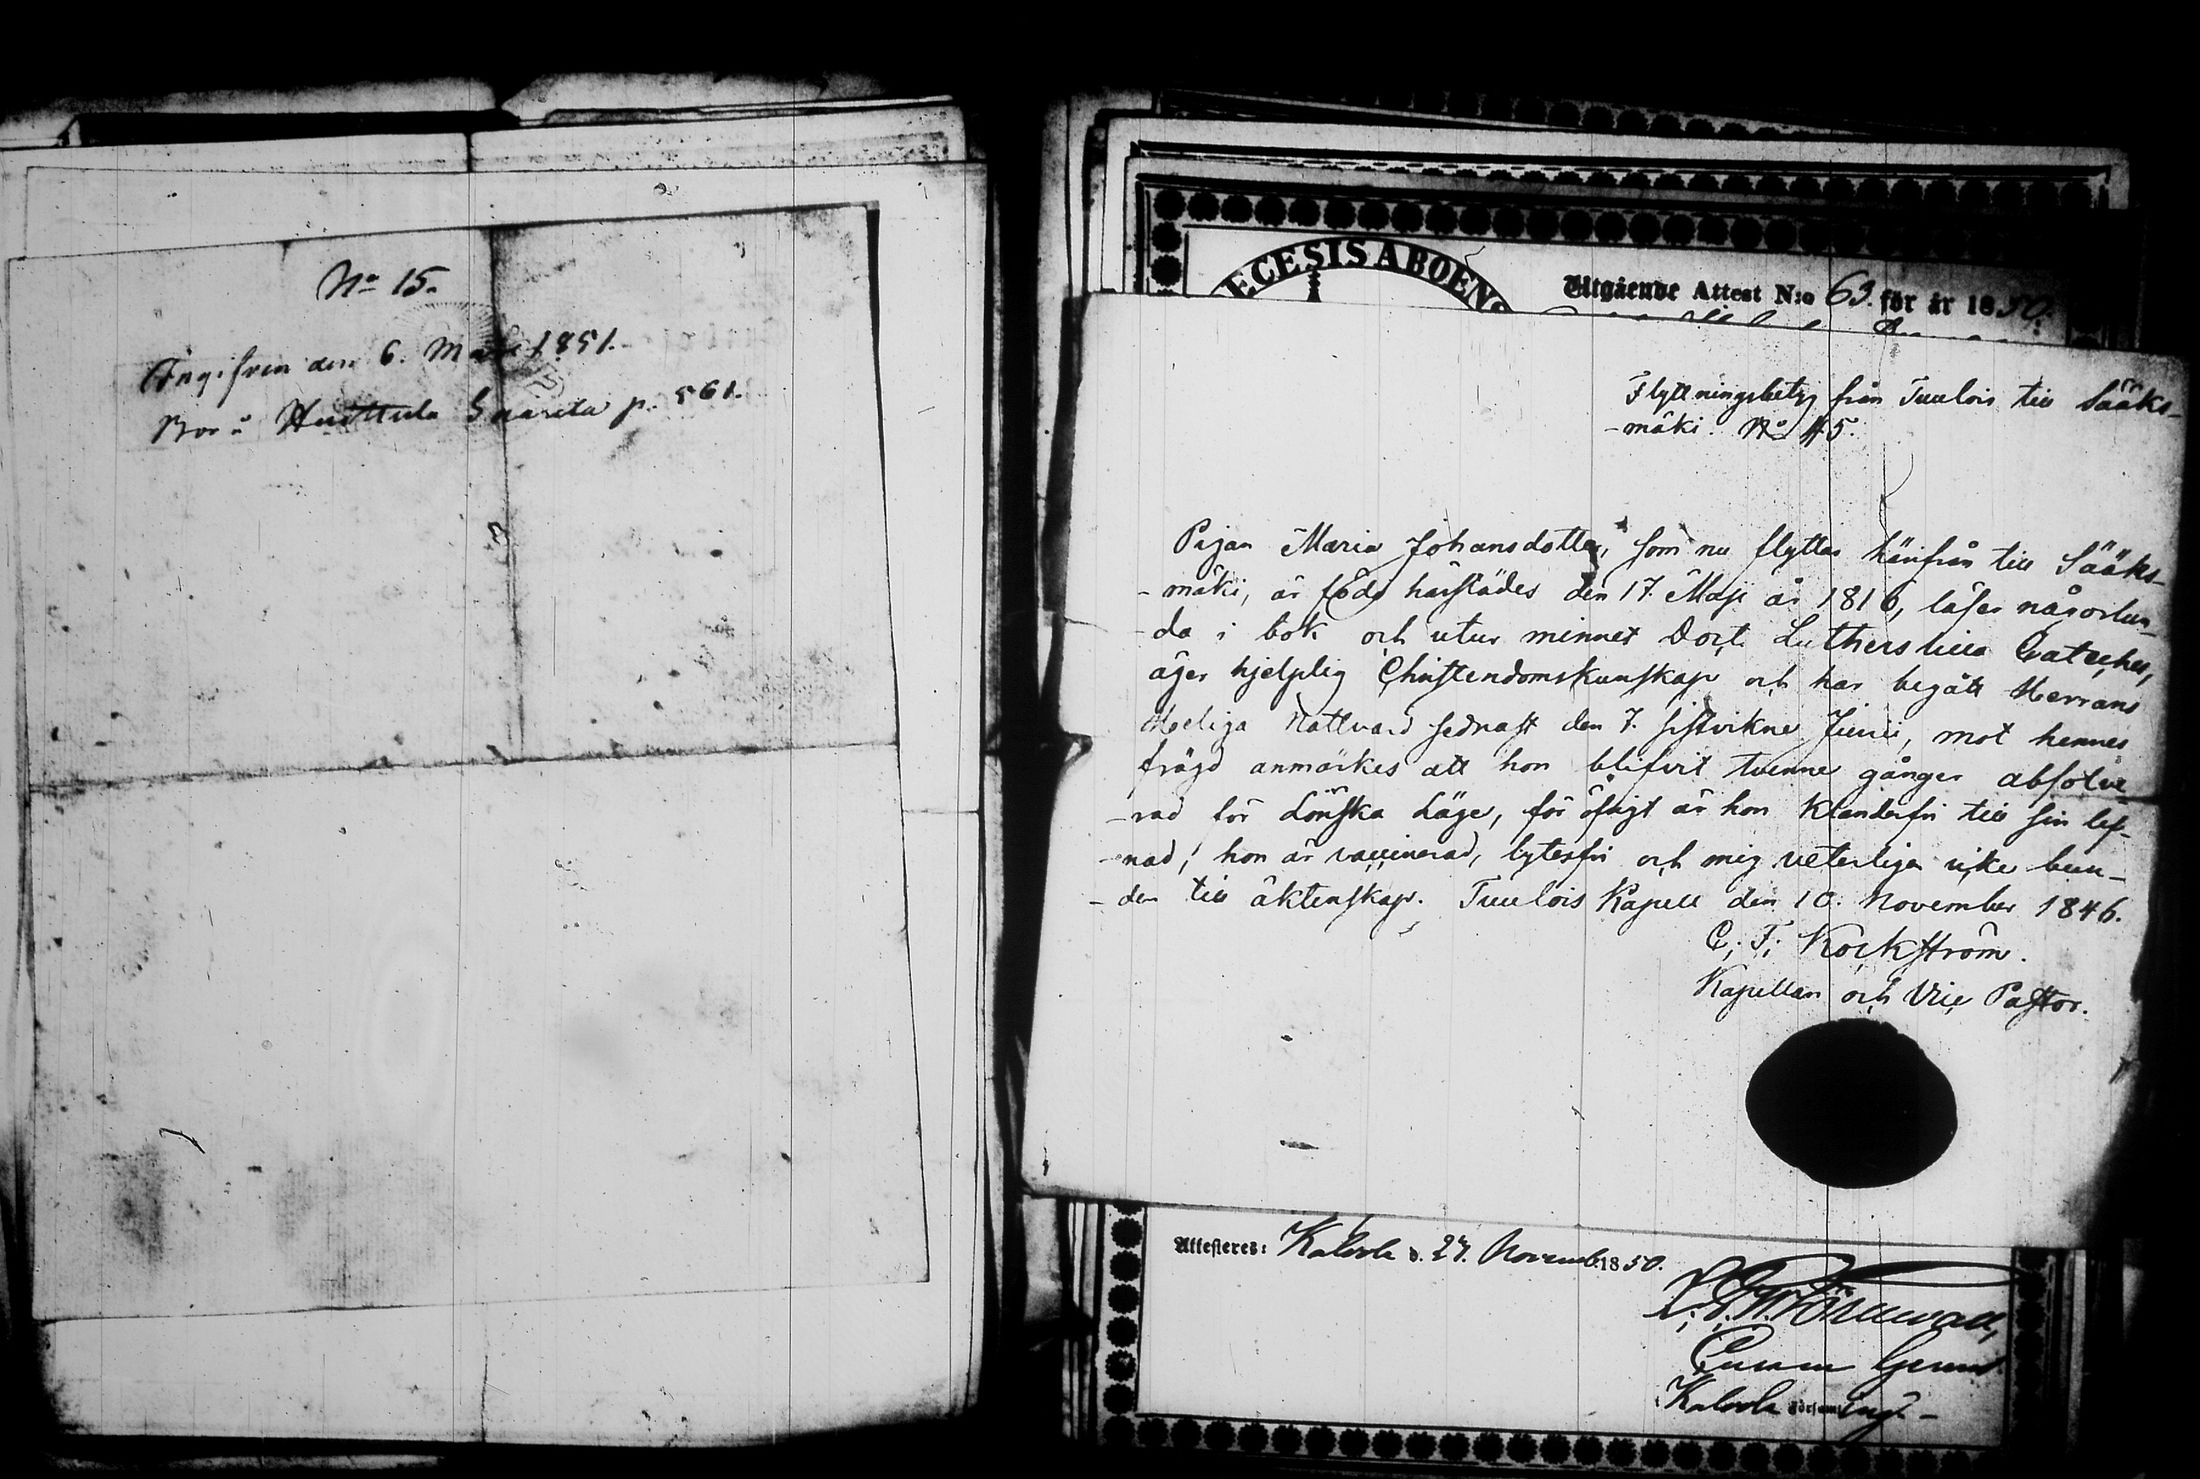 No 15.
Angifven den 6. Mars 1851.
Bor å Huittula p. 561.
ECESIS ABOEN
Utgående Attest N:o 63. för år 1850.
Flyttningsbetyg från Tuulois till Sääks-
-mäki. No 45.
Pigan Maria Johansdotter, som nu flyttar härifrån till Sääks-
-mäki, är född härstädes den 17. Maji år 1816, läser någorlun-
-da i bok och utur minnet Doct. Luthers lilla Cateches,
äger hjelplig Christendomskunskap och har begått Herrans
Heliga Nattvard sednast den 7. sistvikne Junii, mot hennes
frägd anmärkes att hon blifvit tvenne gånger absolve-
-rad för Lönska Läge, för öfrigt är hon klanderfri till sin lef-
-nad, hon är vaccinerad, lytesfri och mig veterligen icke bun-
-den till äktenskap. Tuulois Kapell den 10. November 1846.
C. F. Kockström.
Kapellan och Vice Pastor.
Attesteres: Kalvola d. 27. Novemb. 1850.
Kalvola församling